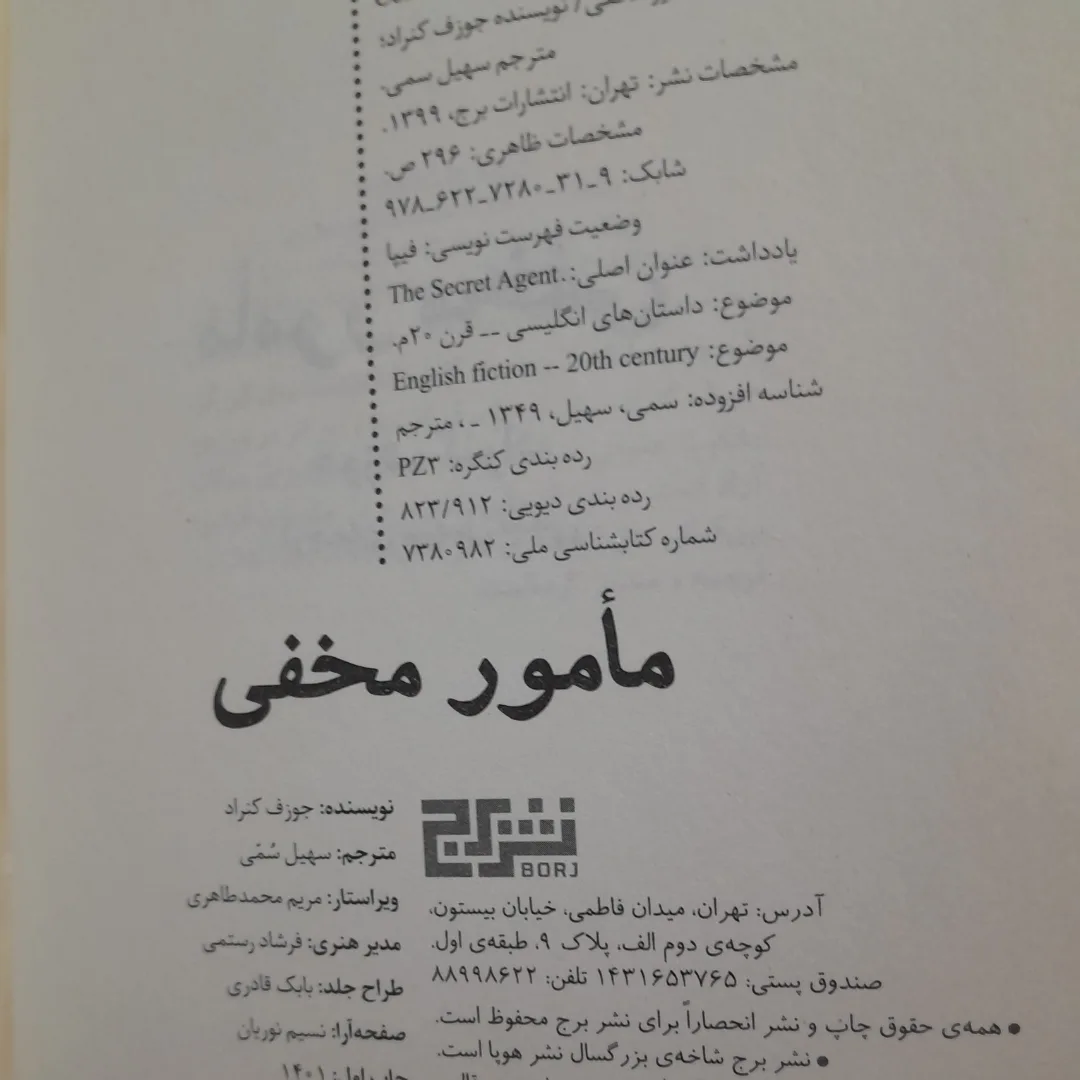 نویسنده جوزف کنراد؛
مترجم سهیل سمی.
مشخصات نشر: تهران: انتشارات برج، ۱۳۹۹.
مشخصات ظاهری: ۲۹۶ ص.
شابک: ۹-۳۱-۷۲۸۰-۶۲۲-۹۷۸
وضعیت فهرست نویسی: فیپا
یادداشت: عنوان اصلی: The Secret Agent.
موضوع: داستان‌های انگلیسی -- قرن ۲۰م.
موضوع: English fiction -- 20th century
شناسه افزوده: سمی، سهیل، ۱۳۴۹ - ، مترجم
رده بندی کنگره: PZ۳
رده بندی دیویی: ۸۲۳/۹۱۲
شماره کتابشناسی ملی: ۷۳۸۰۹۸۲
مأمور مخفی
نشر برج
BORJ
آدرس: تهران، میدان فاطمی، خیابان بیستون،
کوچه‌ی دوم الف، پلاک ۹، طبقه‌ی اول.
صندوق پستی: ۱۴۳۱۶۵۳۷۶۵ تلفن: ۸۸۹۹۸۶۲۲
● همه‌ی حقوق چاپ و نشر انحصاراً برای نشر برج محفوظ است.
● نشر برج شاخه‌ی بزرگسال نشر هوپا است.
نویسنده: جوزف کنراد
مترجم: سهیل سُمّی
ویراستار: مریم محمدطاهری
مدیر هنری: فرشاد رستمی
طراح جلد: بابک قادری
صفحه‌آرا: نسیم نوریان
چاپ اول: ۱۴۰۱